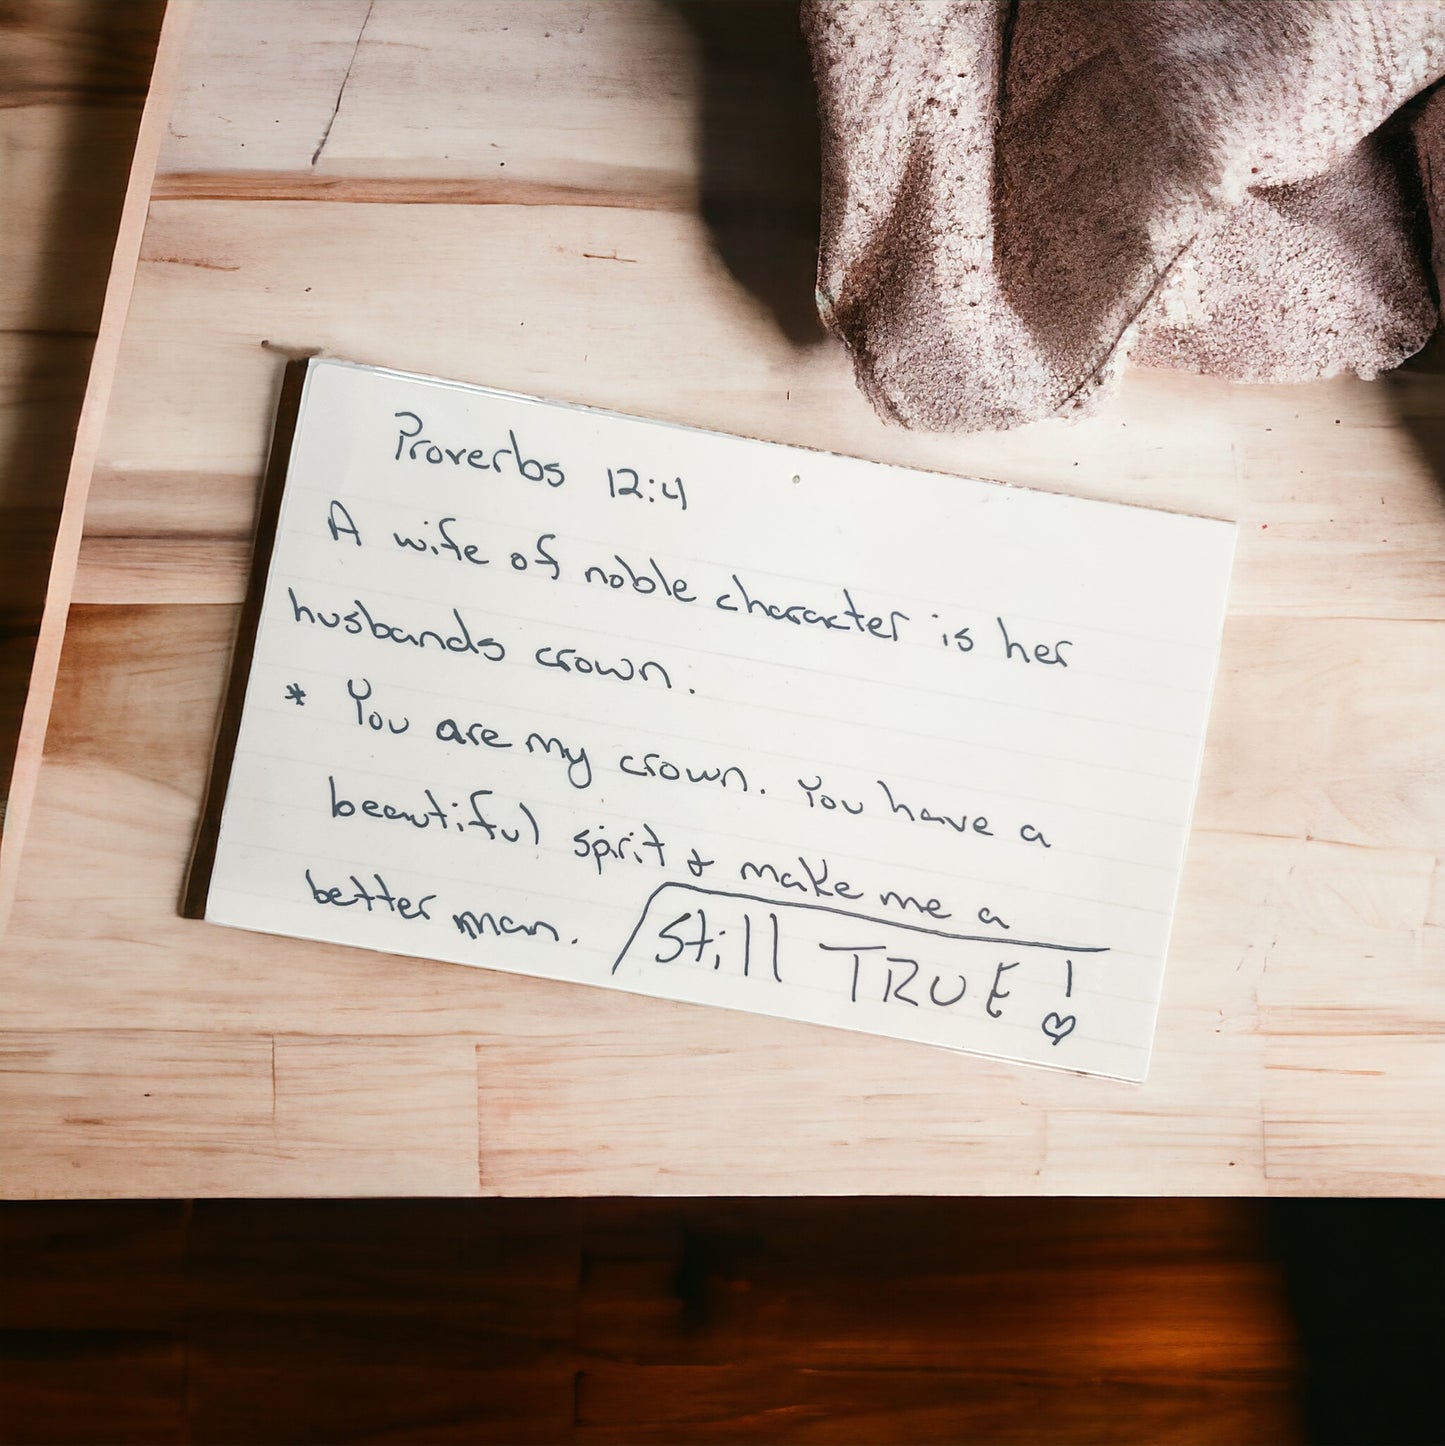 Proverbs 12:4
A wife of noble character is her
husbands crown.
* You are my crown. You have a
beautiful spirit & make me a
better man.
Still TRUE!
♡